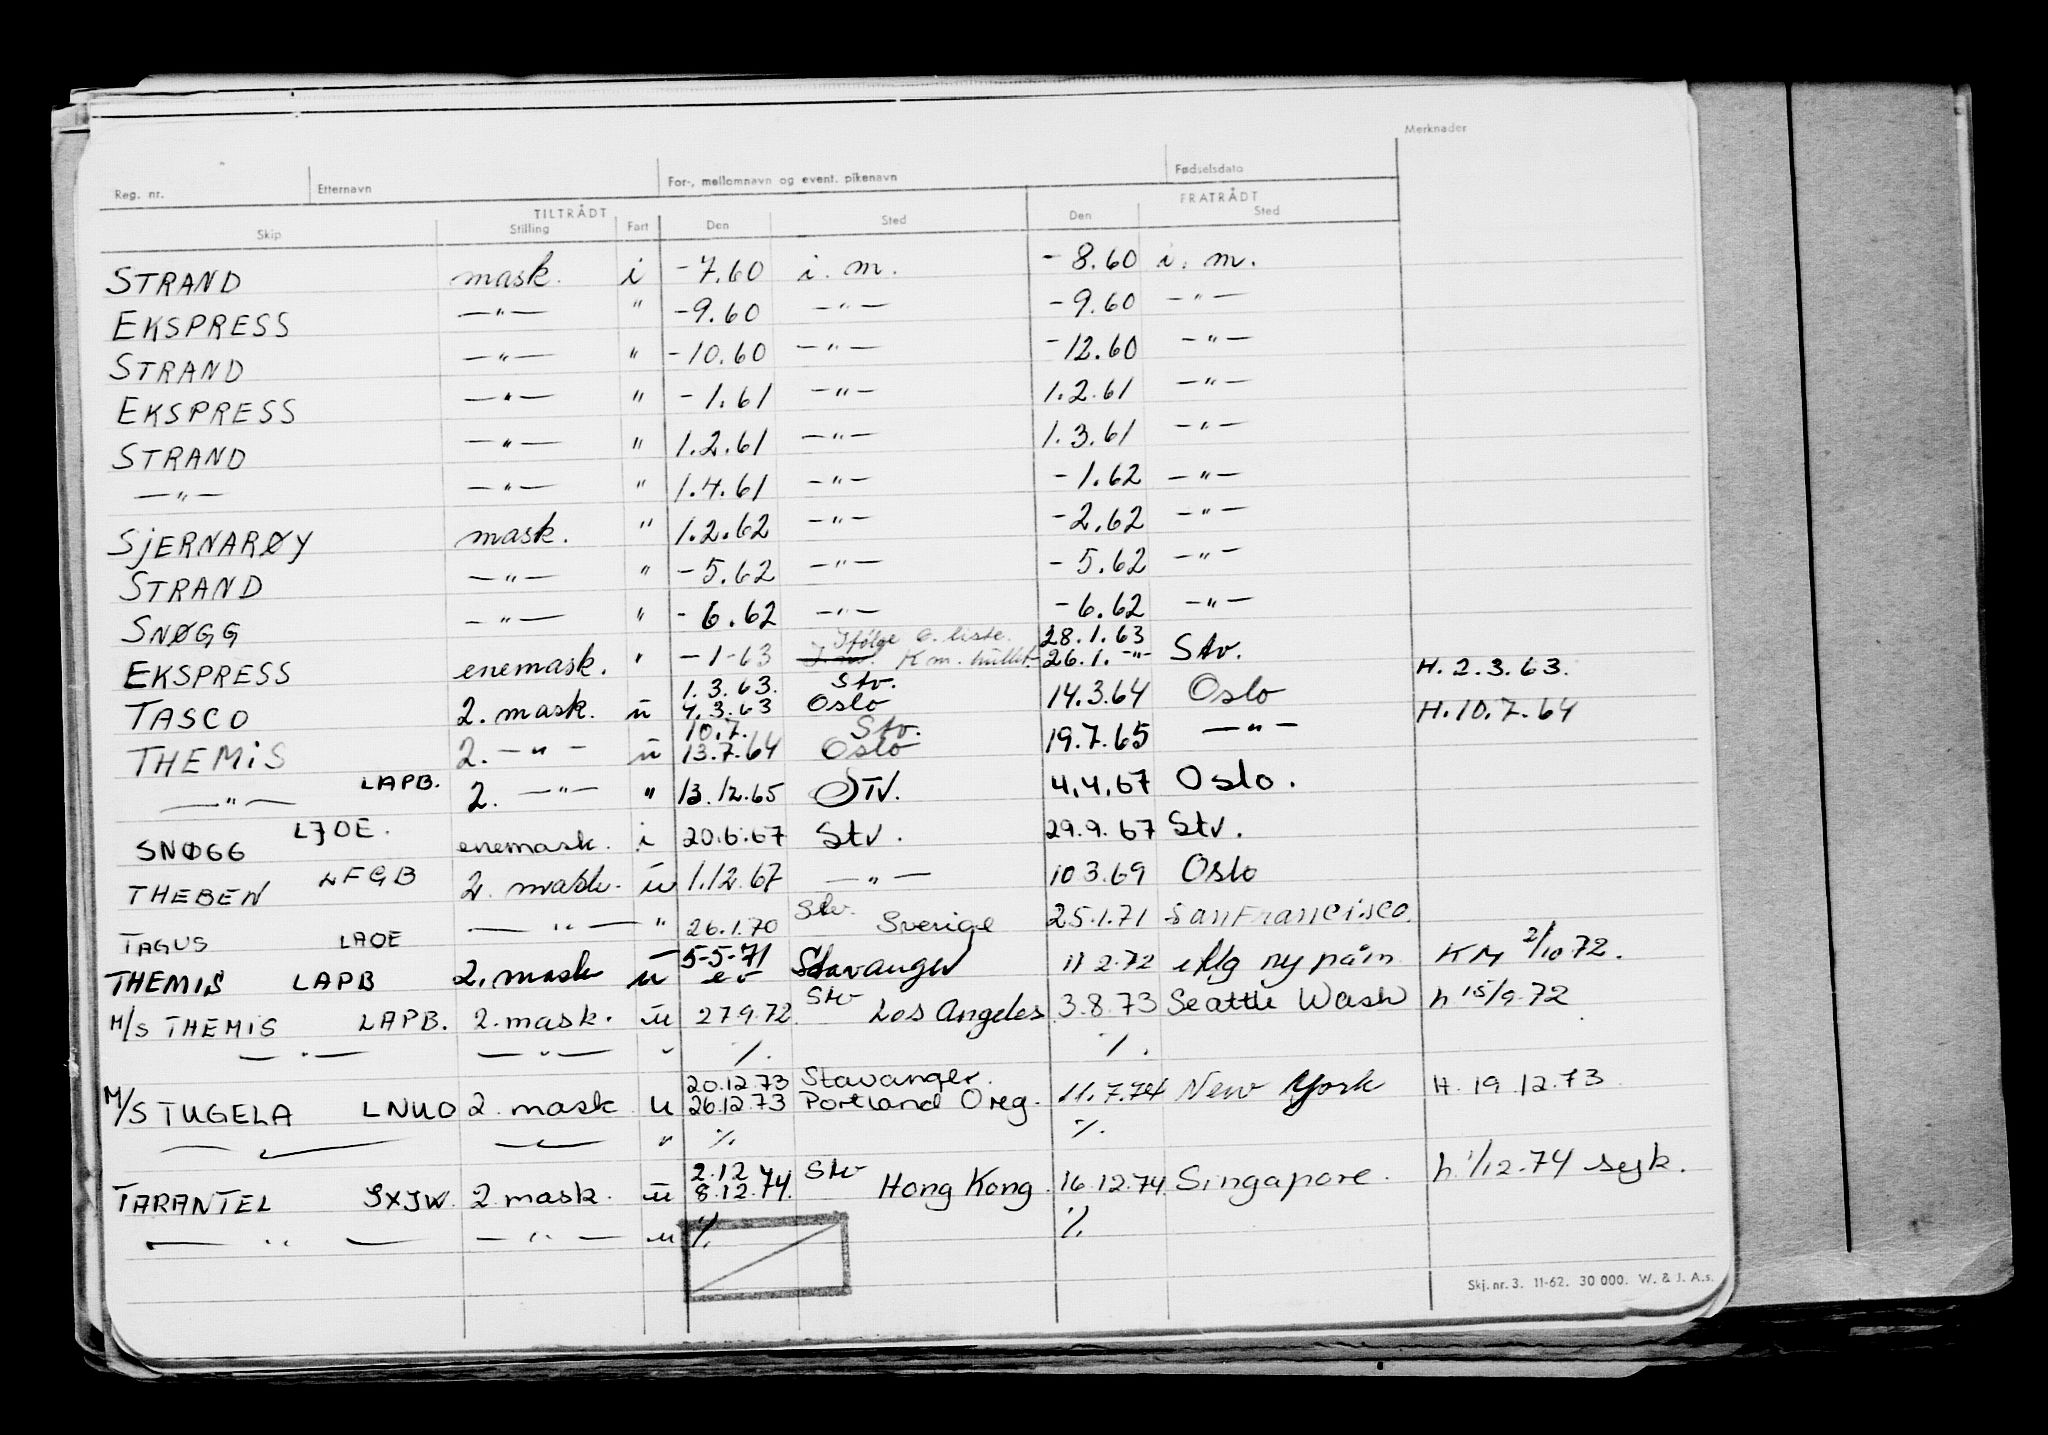 Merknader
Reg. nr. Etternavn For-, mellomnavn og event. pikenavn Fødselsdato
TILTRÅDT FRATRÅDT
Skip Stilling Fart Den Sted Den Sted
STRAND mask. i -7.60 i. m. -8.60 i. m.
EKSPRESS —"— " -9.60 —"— -9.60 —"—
STRAND —"— " -10.60 —"— -12.60 —"—
EKSPRESS —"— " -1.61 —"— 1.2.61 —"—
STRAND —"— " 1.2.61 —"— 1.3.61 —"—
—"— —"— " 1.4.61 —"— -1.62 —"—
SJERNARØY mask. " 1.2.62 —"— -2.62 —"—
STRAND —"— " -5.62 —"— -5.62 —"—
SNØGG —"— " -6.62 —"— -6.62 —"—
Ifølge liste. 28.1.63
EKSPRESS enemask. " -1-63 K m. 26.1. -"- Stv.
1.3.63. Stv. H. 2.3.63.
TASCO 2. mask. ü 4.3.63 Oslo 14.3.64 Oslo
10.7. Stv. H. 10.7.64
THEMIS 2. —"— ü 13.7.64 Oslo 19.7.65 —"—
—"— LAPB. 2. —"— " 13.12.65 STV. 4.4.67 Oslo.
SNØGG LJOE. enemask. i 20.6.67 Stv. 29.9.67 Stv.
THEBEN LFGB 2. mask. ü 1.12.67 —"— 10 3.69 Oslo
TAGUS LAOE —"— " 26.1.70 Stv. Sverige 25.1.71 San Francisco.
THEMIS LAPB 2. mask ü 5-5-71 Stavanger 11 2.72 ny påm KM 2/10 72.
M/S THEMIS LAPB. 2. mask. ü 27 9.72 Stv Los Angeles 3.8.73 Seattle Wash h 15/9.72
—"— —"— " %. %.
20.12.73 Stavanger.
M/S TUGELA LNUO 2. mask u 26.12.73 Portland Oreg. 11.7.74 New York H. 19.12.73
—"— —"— " %. %.
2.12 Stv
TARANTEL SXJW. 2 mask. ü 8.12.74. Hong Kong. 16.12.74 Singapore. h 1/12.74 sejk.
—"— —"— u %. %.
Skj. nr. 3. 11-62. 30 000. W. & J. A.s.